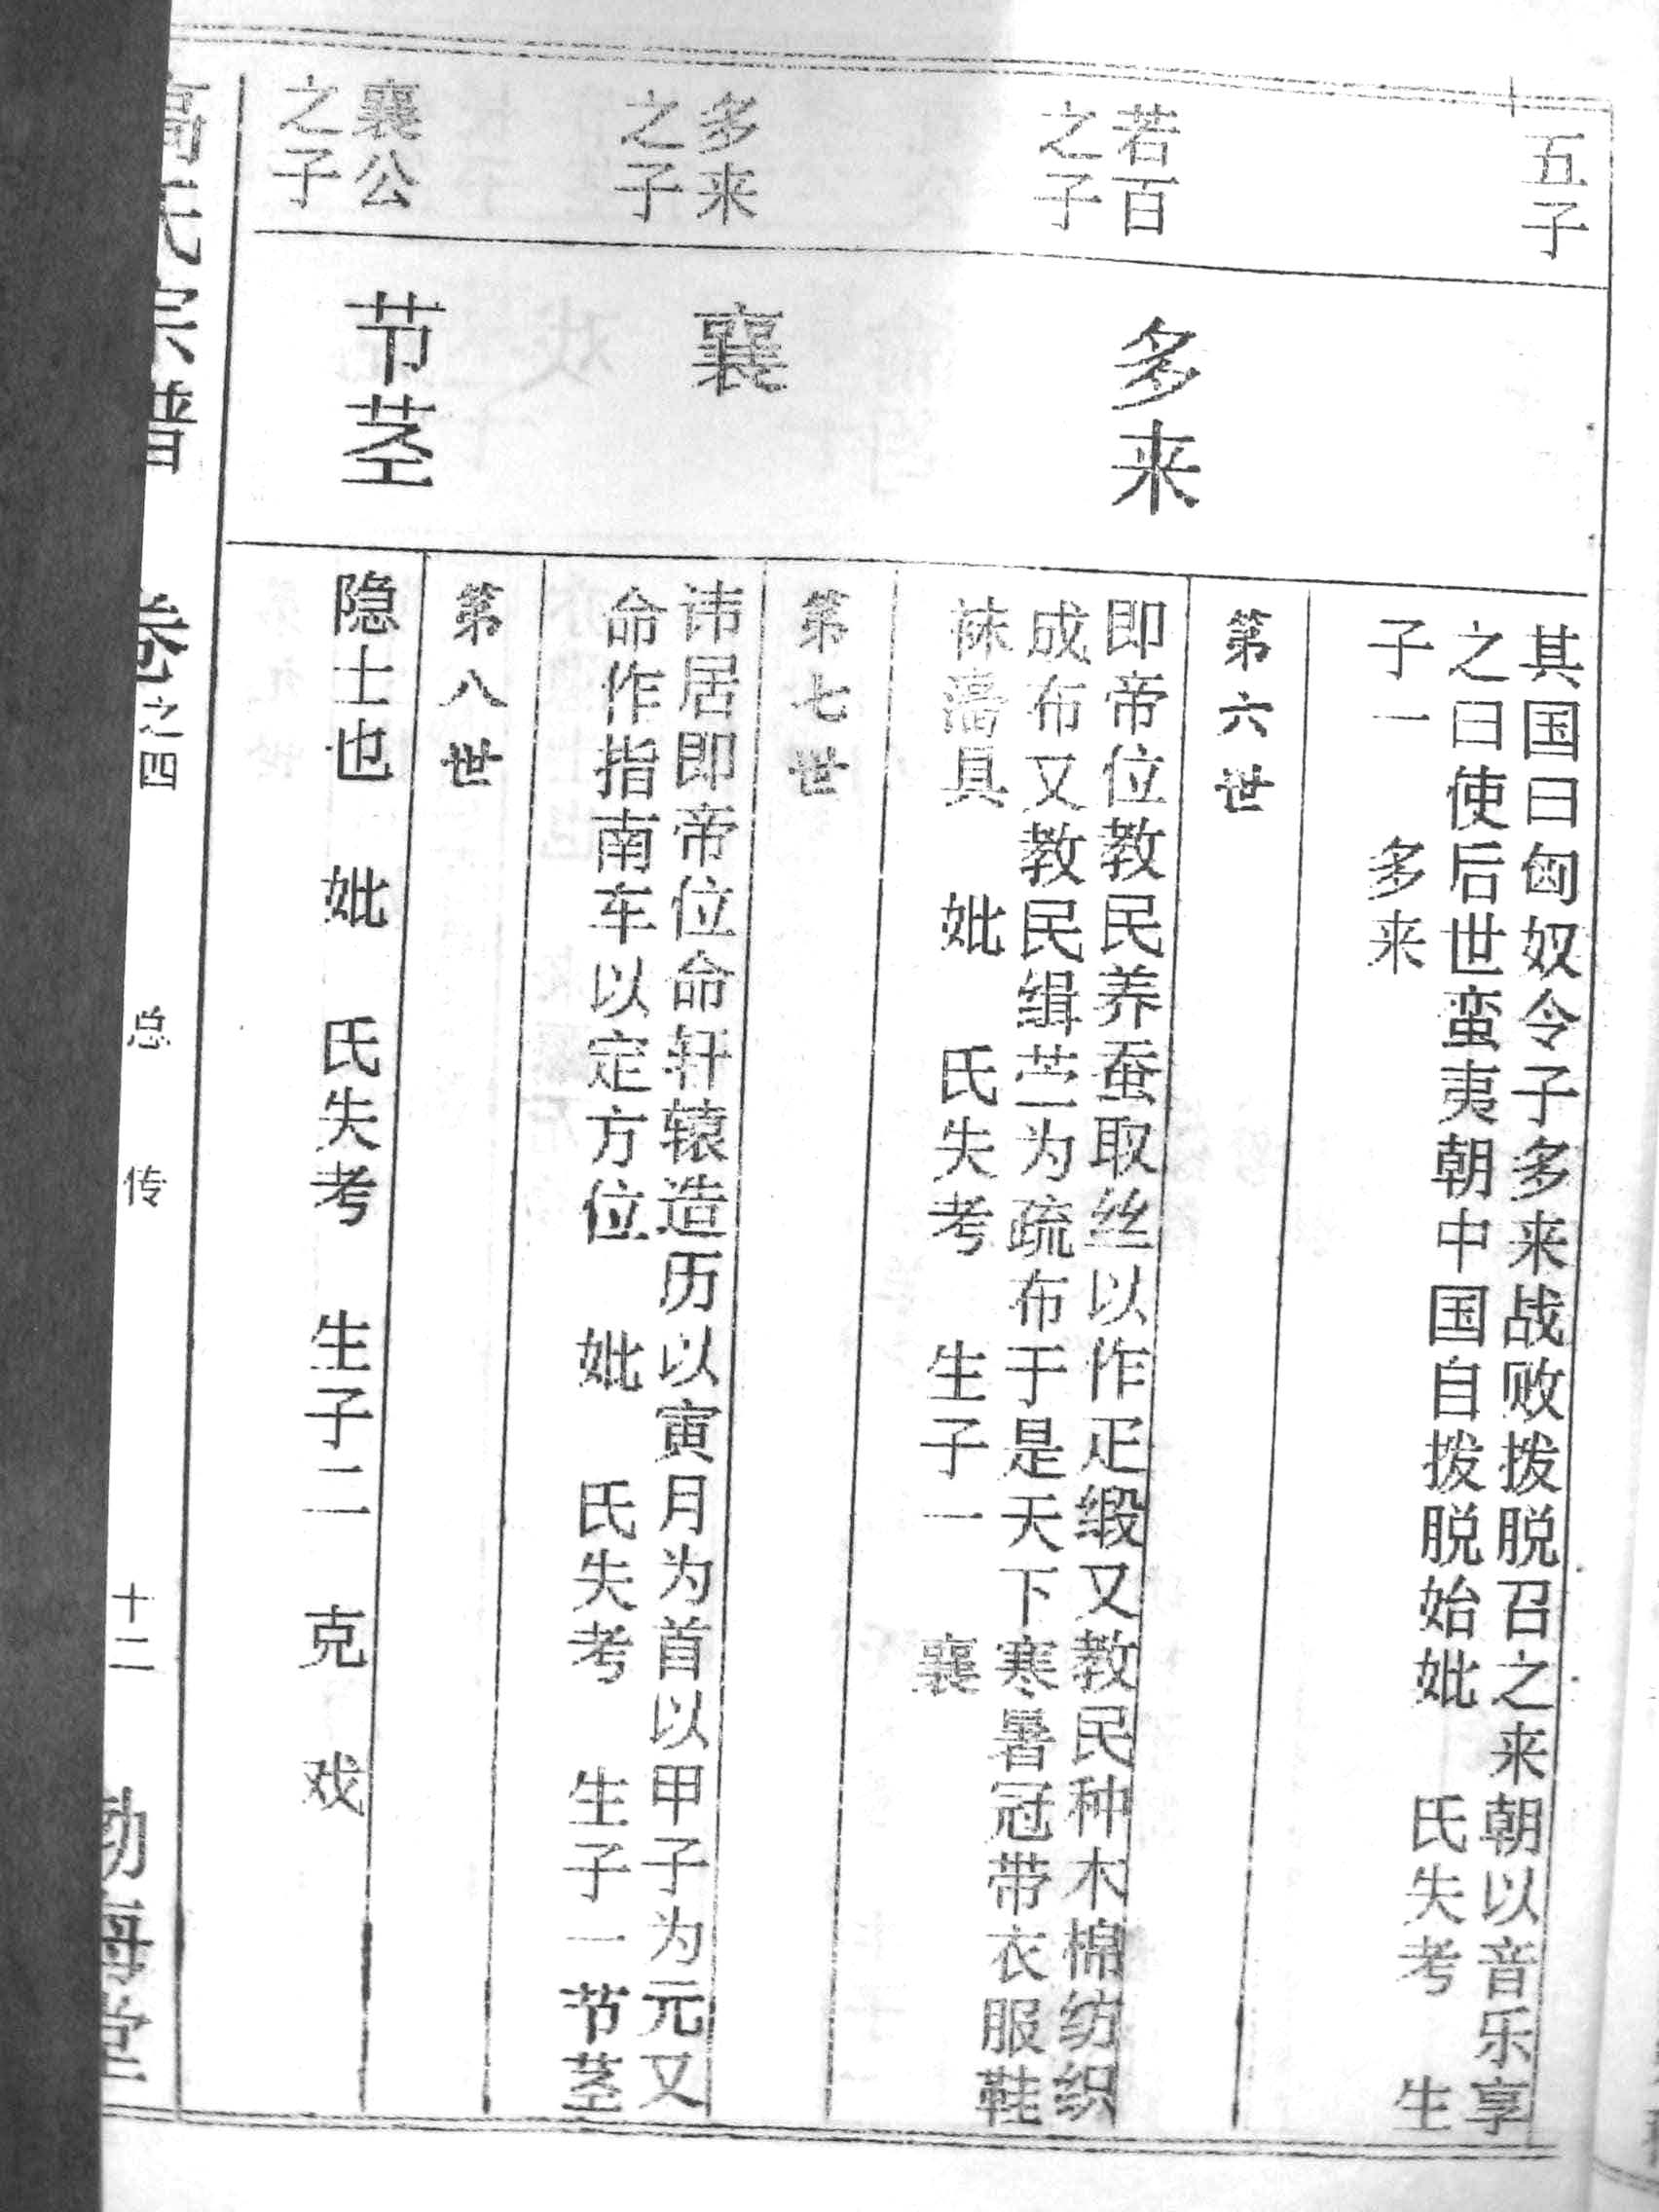 五子
其国曰匈奴令子多来战败拨脱召之来朝以音乐享
之曰使后世蛮夷朝中国自拨脱始妣 氏失考 生
子一 多来
第六世
若百
之子
多来
即帝位教民养蚕取丝以作疋缎又教民种木棉纺织
成布又教民缉苎为疏布于是天下寒暑冠带衣服鞋
袜 具 妣 氏失考 生子一 襄
第七世
多来
之子
襄
讳居即帝位命轩辕造历以寅月为首以甲子为元又
命作指南车以定方位 妣 氏失考 生子一节茎
第八世
襄公
之子
节茎
隐士也 妣 氏失考 生子二 克 戏
高氏宗谱 卷之四 总 传 十二 勃海堂